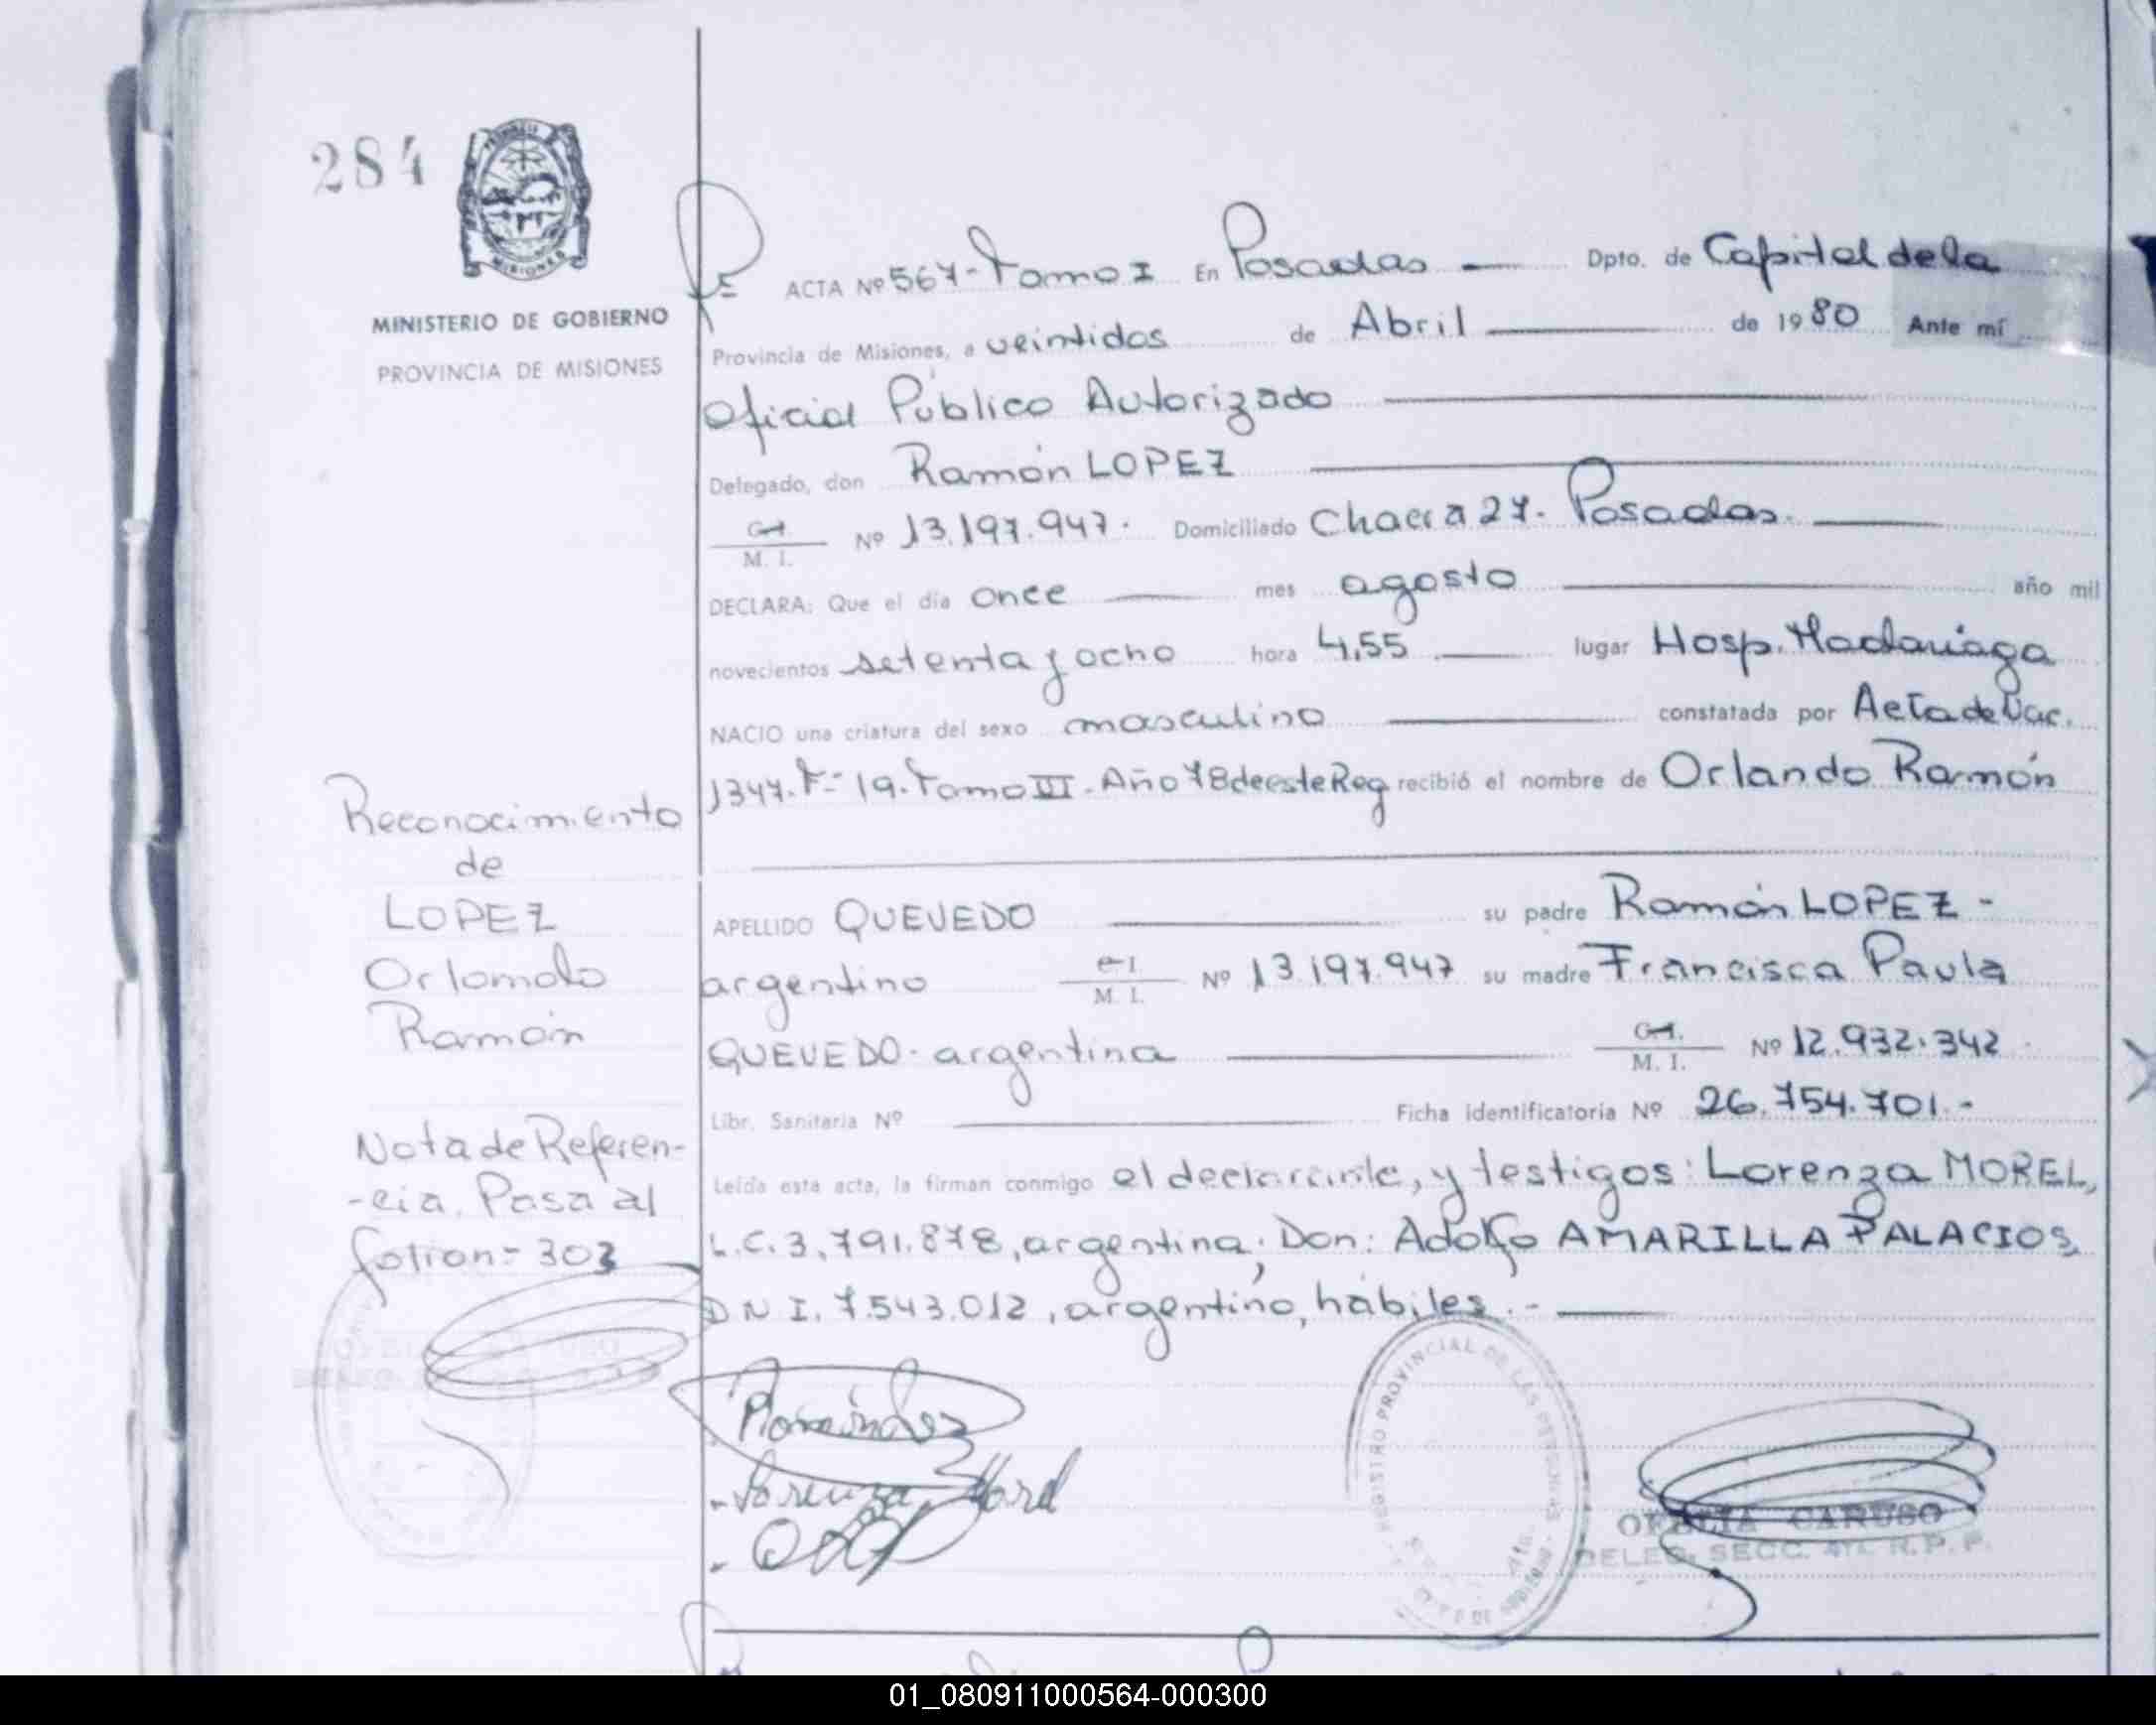 284
MISIONES
MINISTERIO DE GOBIERNO
PROVINCIA DE MISIONES
ACTA Nº 567-Tomo I En Posadas — Dpto. de Capital de la
Provincia de Misiones, a veintidos de Abril — de 1980 Ante mí
Oficial Público Autorizado —
Delegado, don Ramón LOPEZ —
C.I. / M. I. Nº 13.197.947. Domiciliado Chacra 27. Posadas. —
DECLARA: Que el día once — mes agosto — año mil
novecientos setenta y ocho hora 4,55 — lugar Hosp. Madariaga
NACIO una criatura del sexo masculino — constatada por Acta de Nac.
1347. Fº 19. Tomo III. Año 78 de este Reg recibió el nombre de Orlando Ramón
APELLIDO QUEVEDO — su padre Ramón LOPEZ -
argentino C.I. / M. I. Nº 13.197.947 su madre Francisca Paula
QUEVEDO. argentina — C.I. / M. I. Nº 12.932.342
Libr. Sanitaria Nº — Ficha identificatoria Nº 26.754.701.-
Leída esta acta, la firman conmigo el declarante, y testigos: Lorenza MOREL,
L.C. 3.791.878, argentina; Don: Adolfo AMARILLA PALACIOS,
D N I. 7.543.012, argentino, hábiles.- —
Reconocimiento
de
LOPEZ
Orlando
Ramón
Nota de Referen-
-cia. Pasa al
folio nº 303
Lorenza Morel
REGISTRO PROVINCIAL DE LAS PERSONAS
OFELIA CARUSO
DELEG. SECC. 4ta. R.P.P.
01_080911000564-000300